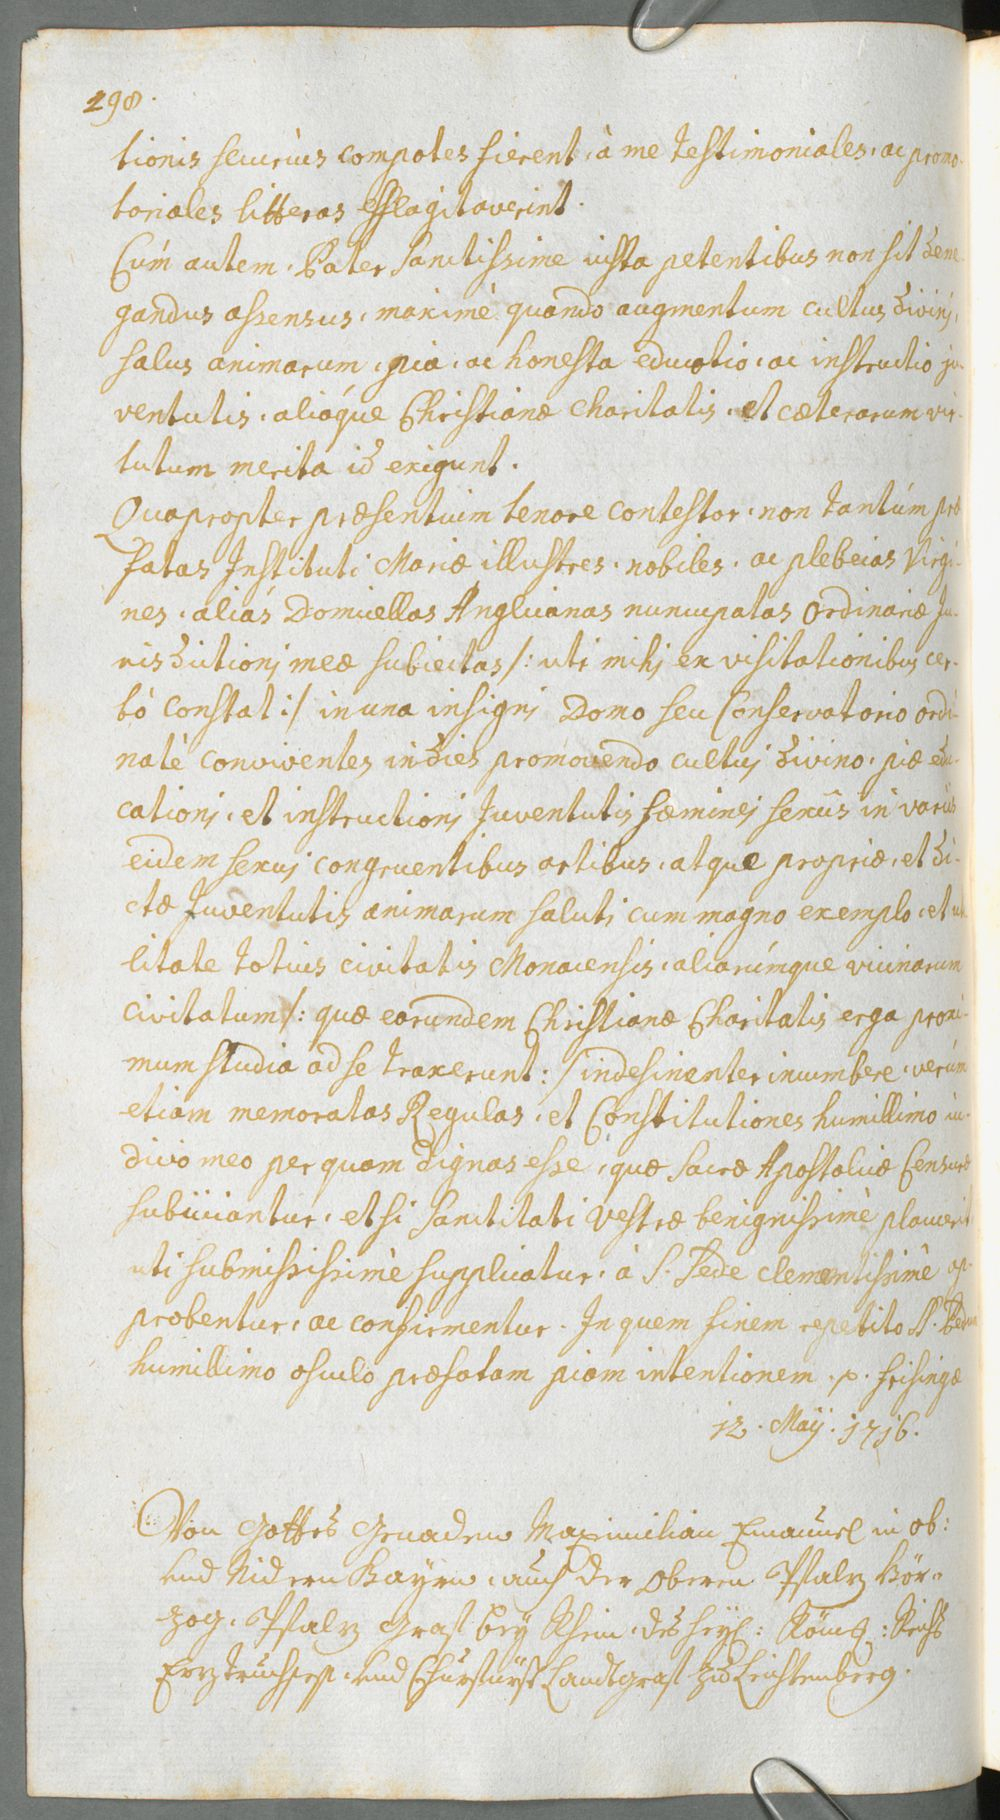 298.
tionis securius compotes fierent, à me testimoniales, ac promo-
toriales litteras efflagitaverint.
Cùm autem, Pater Sanctissime iusta petentibus non sit dene-
gandus assensus, maximè quando augmentum cultus divinj,
salus animarum, pia, ac honesta educatio, ac instructio ju-
ventutis, aliáque Christianæ charitatis, et cæterarum vir-
tutum merita id exigunt.
Quapropter præsentium tenore contestor, non tantùm præ
fatas Instituti Mariæ illustres, nobiles, ac plebeias Virgi-
nes, aliàs Domicellas Anglicanas nuncupatas ordinariæ Ju-
risdictionj meæ subiectas /: uti mihj ex visitationibus cer-
tò constat :/ in una insignj Domo seu Conservatorio ordi-
natè conviventes in dies promovendo cultuj divino, piæ edu-
cationj, et instructionj Juventutis fœminej sexûs in variis
eidem sexuj congruentibus artibus, atque propriæ, et di-
ctæ Juventutis animarum salutj cum magno exemplo, et uti-
litate totius civitatis Monacensis, aliarúmque vicinarum
civitatum /: quæ earundem Christianæ Charitatis erga proxi-
mum studia ad se traxerunt :/ indesinenter incumbere, verùm
etiam memoratas Regulas, et Constitutiones humillimo iu-
dicio meo per quam dignas esse, quæ sacræ Apostolicæ Censuræ
subiiciantur, et si Sanctitati Vestræ benignissimè placuerit
uti submississimè supplicatur, à S. Sede clementissimè ap-
probentur, ac confirmentur. In quem finem repetito SS. Pedum
humillimo osculo præfatam piam intentionem .p. frisingæ
12. Maÿ. 1716.
Von Gottes Genaden Maximilian Emanuel in ob:
und Nidern Bayrn, auch der Oberen Pfalz Hör-
zog, Pfalz Graf bey Rhein, des heyl: Röm: Reichs
Erztruchsess, und Churfürst Landtgraf zu Leichtenberg.